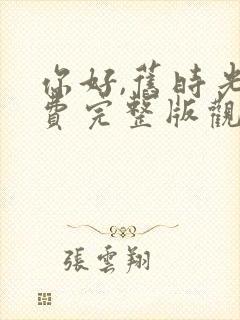 你好,舊時光
費完整版觀
張雲翔